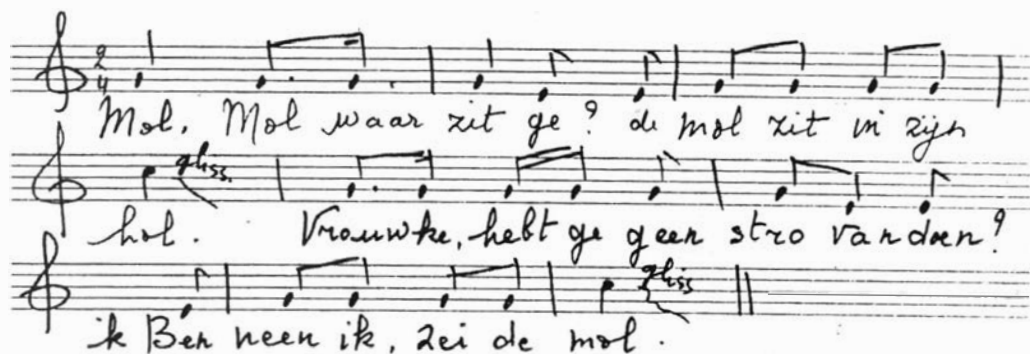 2
4
Mol, Mol waar zit ge? de mol zit in zijn
gliss.
hol. Vrouwke, hebt ge geen stro vandoen?
gliss
ik Ben neen ik, zei de mol.